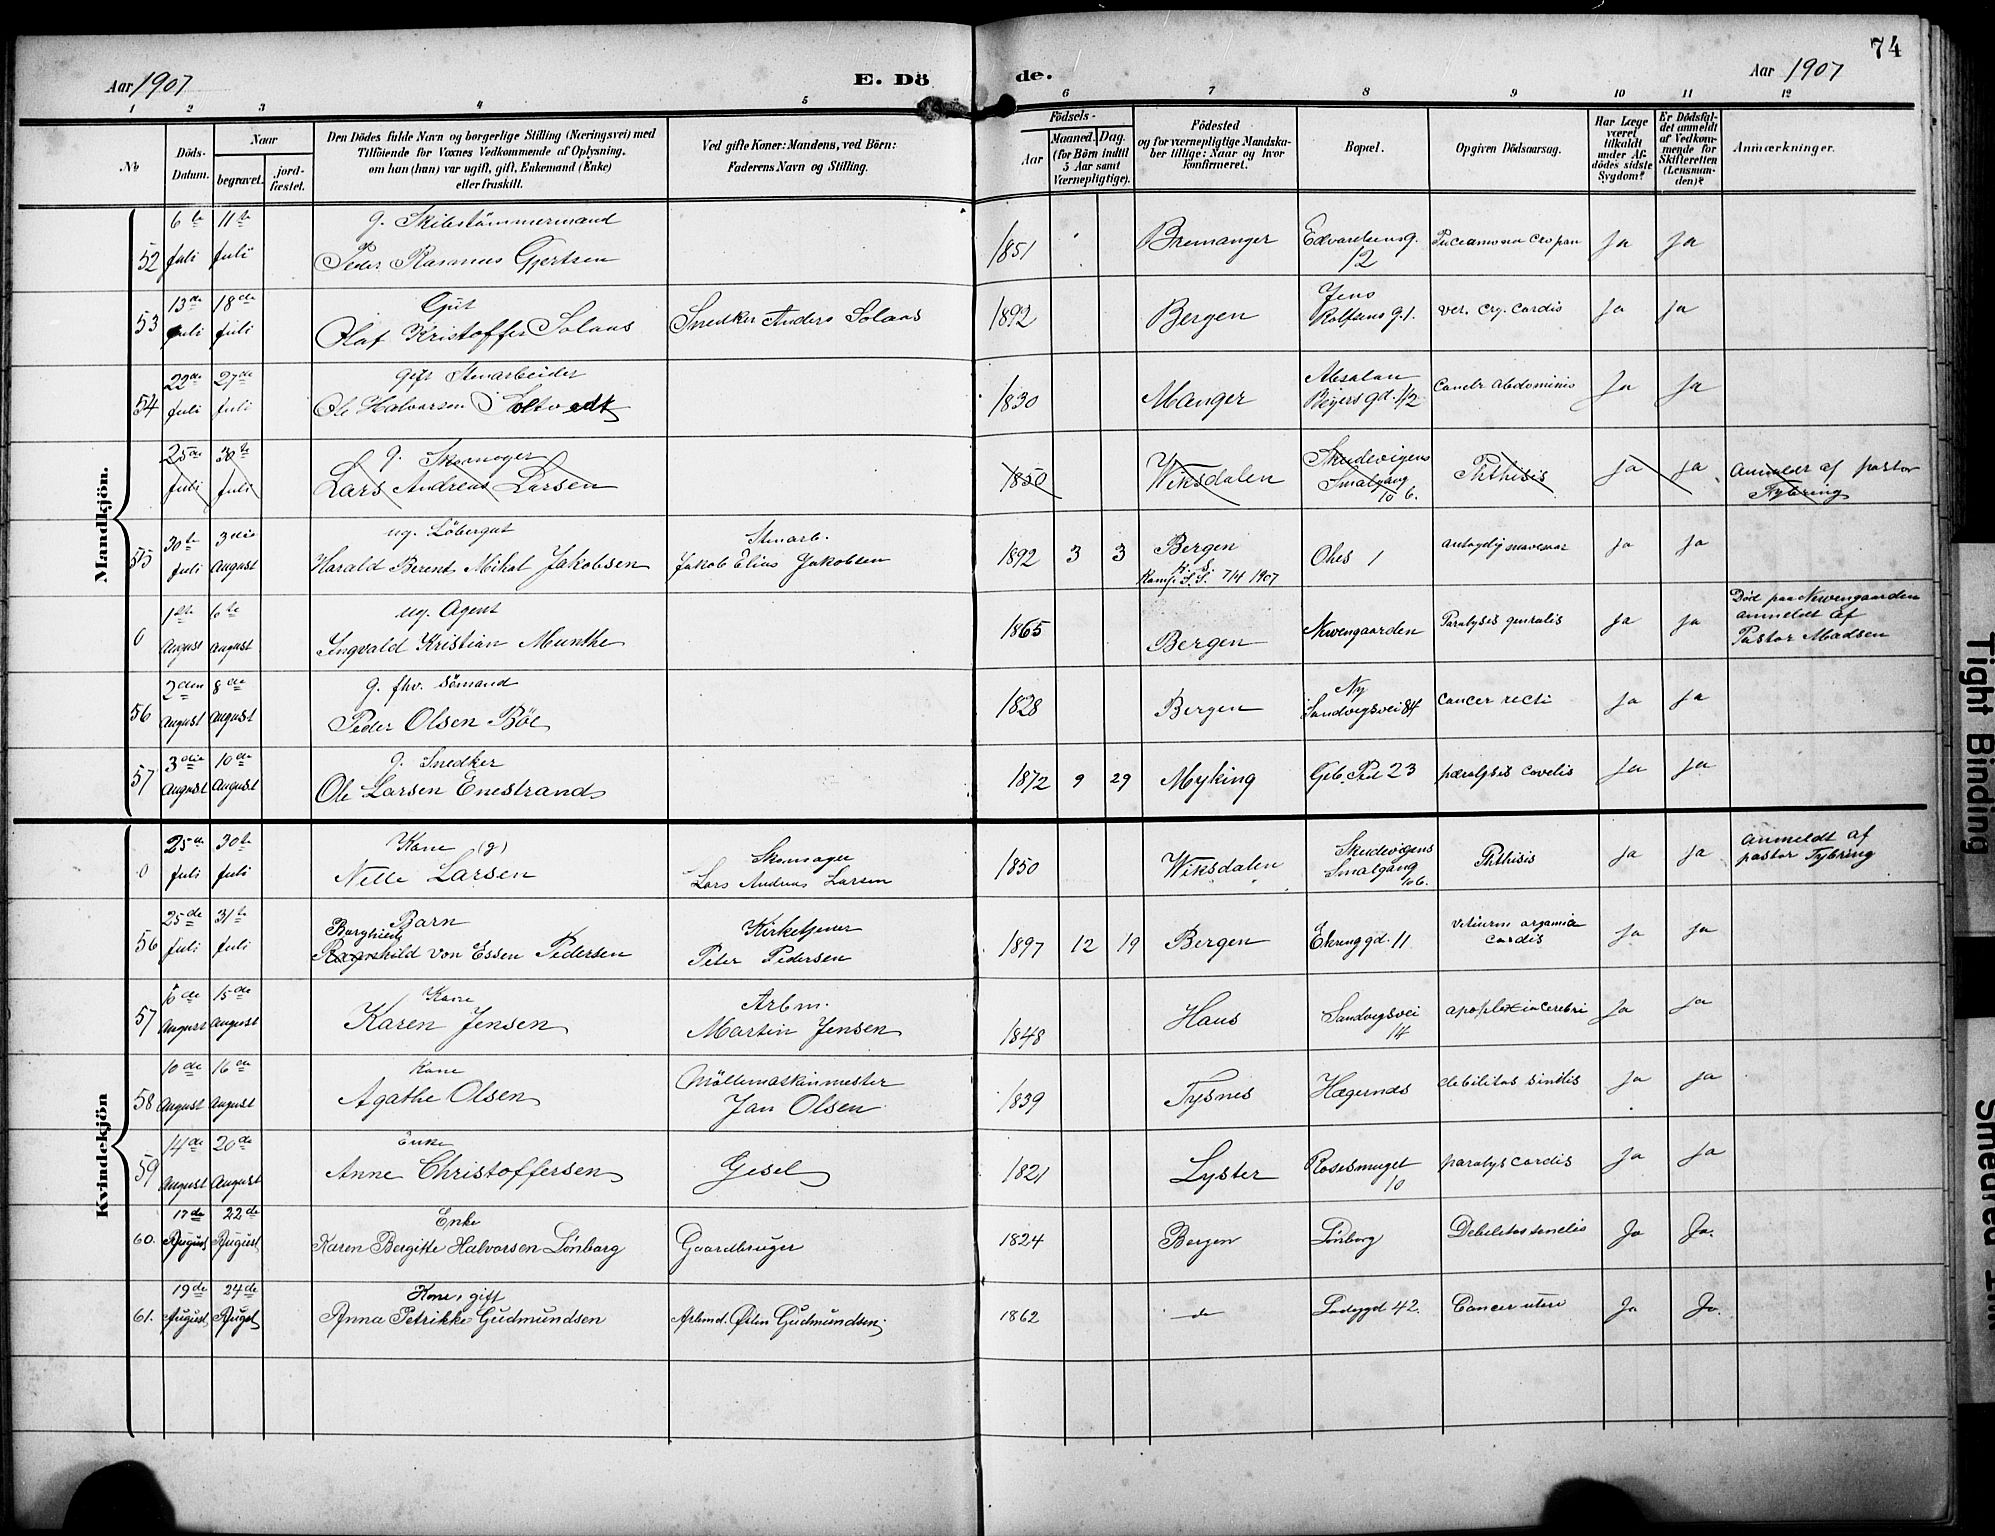 74
Aar 1907
E. Dö
de.
Aar 1907
1 2 3 4 5 6 7 8 9 10 11 12
No
Döds-
Datum.
Naar
begravet.
jord-
fæstet.
Den Dödes fulde Navn og borgerlige Stilling (Næringsvei) med
Tilföiende for Voxnes Vedkommende af Oplysning,
om han (hun) var ugift, gift, Enkemand (Enke)
eller fraskilt.
Ved gifte Koner: Mandens, ved Börn:
Faderens Navn og Stilling.
Födsels-
Aar
Maaned. Dag.
(for Börn indtil
5 Aar samt
Værnepligtige).
Födested
og for værnepligtige Mandska-
ber tillige: Naar og hvor
konfirmeret.
Bopæl.
Opgiven Dödsaarsag.
Har Læge
været
tilkaldt
under Af-
dödes sidste
Sygdom?
Er Dödsfal-
det anmeldt
af Vedkom-
mende for
Skifteretten
(Lensman-
den)?
Anmærkninger.
Mandkjön.
52 6te Juli 11te Juli
g. Skibstömmermand
Peder Rasmus Gjertsen
1851 Bremanger
12
Ja Ja
53 13de Juli 18de Juli
Gut
Olaf Kristoffer Solaas
Snedker Anders Solaas
1892 Bergen
Jens
Rolfsens g. 1.
cordis
Ja Ja
54 22de Juli 27de Juli
gift Stenarbeider
Ole Halvorsen
1830 Manger
Absalon
Beyers gd. 1/2
abdominis
Ja Ja
25de Juli 30te Juli
g. Skomager
Lars Andreas Larsen
1850 Wiksdalen
Skudevigens
Smalgang
10 b.
Phthisis
Ja Ja
af pastor
Fybring
55 30te Juli 3die August
ug. Löbergut
Harald Berent Mikal Jakobsen
Stenarb.
Jakob Elius Jakobsen
1892 3 3 Bergen
7/4 1907
1
Ja Ja
0 1ste August 6te August
ug. Agent
Ingvald Kristian Munthe
1865 Bergen
Neevengaarden
Paralysis
Ja Ja
Död paa Neevengaarden
anmeldt af
Pastor Madsen
56 2den August 8de August
g. fhv. Sömand
Peder Olsen Böe
1828 Bergen
Ny
Sandvigsvei 84
cancer recti
Ja Ja
57 3die August 10de August
g. Snedker
Ole Larsen Enestrand
1872 9 29 Myking
23
Ja Ja
Kvindekjön
0 25de Juli 30te Juli
Kone (g)
Nelle Larsen
Skomager
Lars Andreas Larsen
1850 Wiksdalen
Skudevigens
Smalgang
10 b.
Phthisis
Ja Ja
anmeldt af
pastor Fybring
56 25de Juli 31te Juli
Barn
Borghild
Ragnhild von Essen Pedersen
Kirketjener
Peter Pedersen
1897 12 19 Bergen
11
vitium organica
cordis
Ja Ja
57 6de August 15de August
Kone
Karen Jensen
Arbm.
Martin Jensen
1848 Haus
Sandvigsvei
14
apoplexia cerebri
Ja Ja
58 10de August 16de August
Kone
Agathe Olsen
Möllemaskinmester
Jan Olsen
1839 Tysnes
Hægernæs
debilitas sinilis
Ja Ja
59 14de August 20de August
Enke
Anne Christoffersen
Gesel
1821 Lyster
Rosesmuget
10
paralys cordis
Ja Ja
60. 17de August 22de August
Enke
Karen Bergitte Halvorsen Lönborg
Gaardbruger
1824 Bergen
Lönborg
Debilitas senilis
Ja Ja.
61. 19de August 24de August
Kone, gift
Anna Petrikke Gudmundsen
Arbmd. Østen Gudmundsen
1862 do
Ladegd 42.
Cancer uteri
Ja Ja.
Tight Binding
Smeared Ink